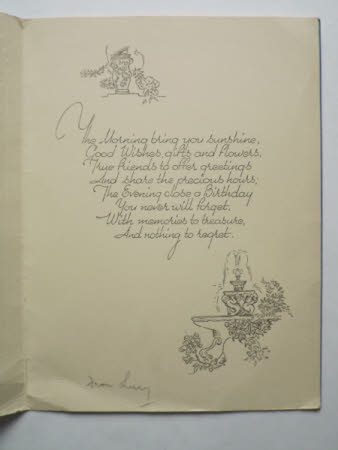 The Morning bring you sunshine,
Good Wishes, gifts and flowers,
True friends to offer greetings
And share the precious hours;
The Evening close a Birthday
You never will forget,
With memories to treasure,
And nothing to regret.
From